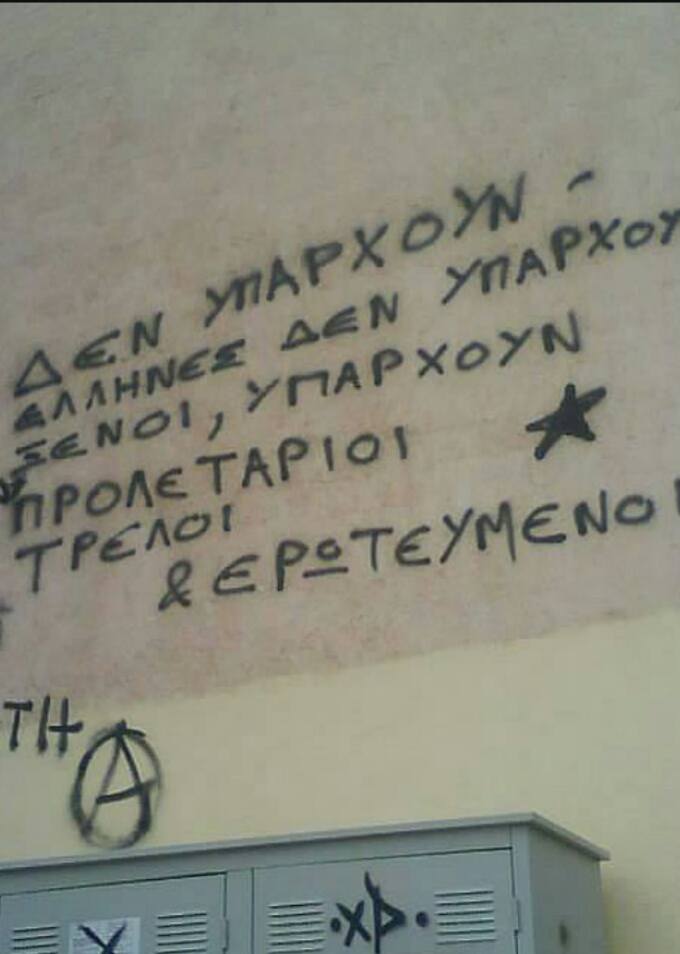 ΔΕΝ ΥΠΑΡΧΟΥΝ -
ΕΛΛΗΝΕΣ ΔΕΝ ΥΠΑΡΧΟΥ
ΞΕΝΟΙ, ΥΠΑΡΧΟΥΝ
ΠΡΟΛΕΤΑΡΙΟΙ
ΤΡΕΛΟΙ
& ΕΡΩΤΕΥΜΕΝΟΙ
ΤΗ
Α